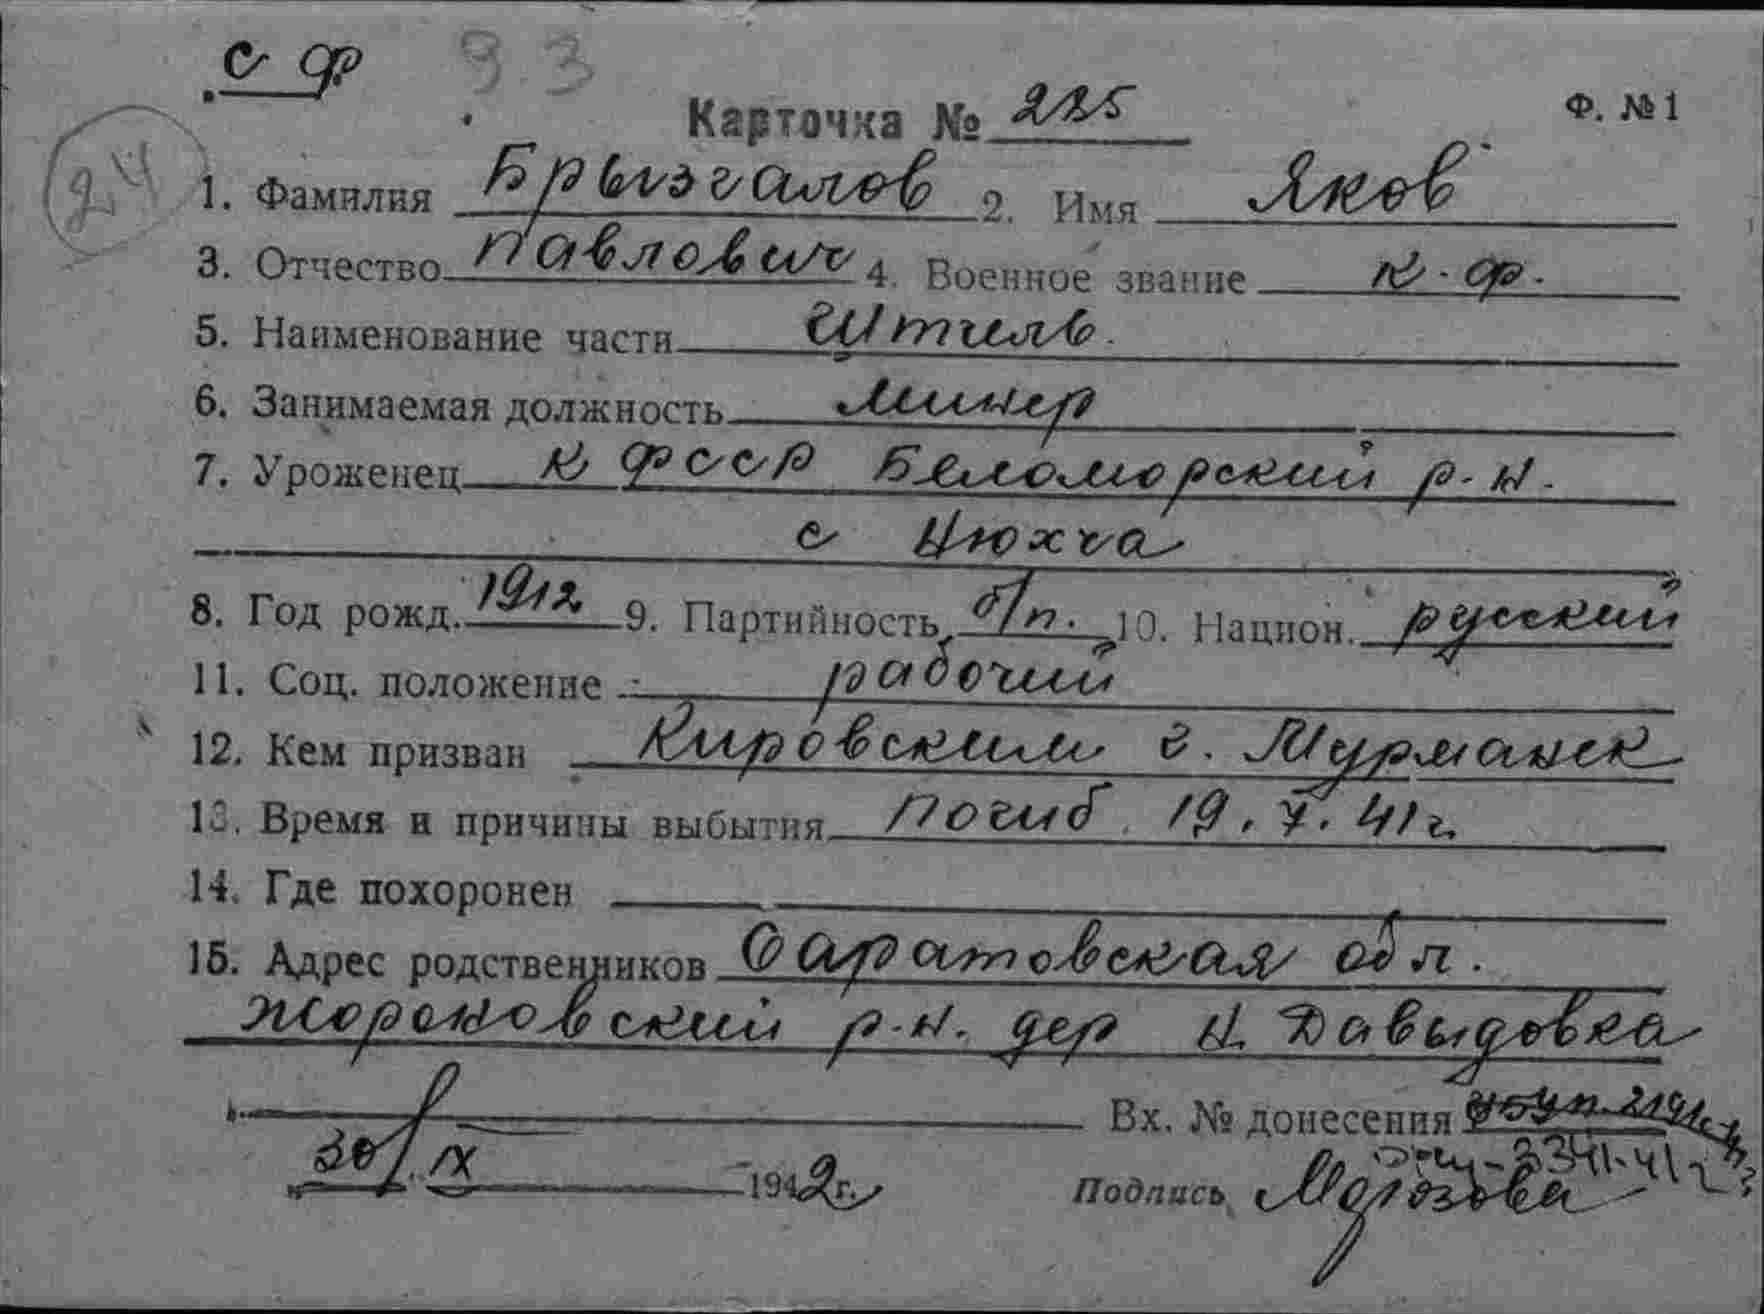 с ф 93
Карточка № 225 Ф. № 1
24
1. Фамилия Брызгалов 2. Имя Яков
3. Отчество Павлович 4. Военное звание к-ф.
5. Наименование части Штиль.
6. Занимаемая должность минер
7. Уроженец К ФССР Беломорский р-н.
с Нюхча
8. Год рожд. 1912 9. Партийность б/п. 10. Национ. русский
11. Соц. положение рабочий
12. Кем призван Кировским г. Мурманск
13. Время и причины выбытия Погиб. 19. X. 41 г.
14. Где похоронен
15. Адрес родственников Саратовская обл.
р-н. дер Н. Давыдовка
Вх. № донесения
30/IX 1942 г. Подпись Морозова